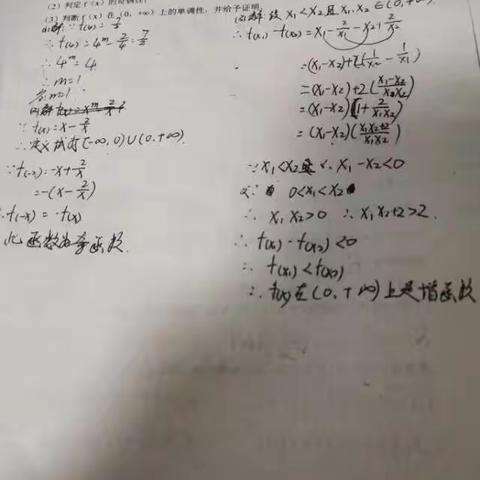 (2)判定f(x)的奇偶性
(3)判断f(x)在(0,+∞)上的单调性,并给予证明
∴ f(4)=4^m-2/4=7/2
∴ 4^m=4
∴ m=1
∴ f(x)=x-2/x
∴ 定义域为(-∞,0)∪(0,+∞)
∵f(-x)=-x+2/x
=-(x-2/x)
∴ f(-x)=-f(x)
此函数为奇函数
(3)解:设x₁<x₂且x₁,x₂∈(0,+∞)
∴ f(x₁)-f(x₂)=x₁-2/x₁-x₂+2/x₂
=(x₁-x₂)+2(1/x₂-1/x₁)
=(x₁-x₂)+2(x₁-x₂/x₁x₂)
=(x₁-x₂)(1+2/x₁x₂)
=(x₁-x₂)(x₁x₂+2/x₁x₂)
∵x₁<x₂ ∴ x₁-x₂<0
0<x₁<x₂
∴ x₁x₂>0 ∴ x₁x₂+2>2
∴ f(x₁)-f(x₂)<0
∴ f(x₁)<f(x₂)
∴ f(x)在(0,+∞)上是增函数